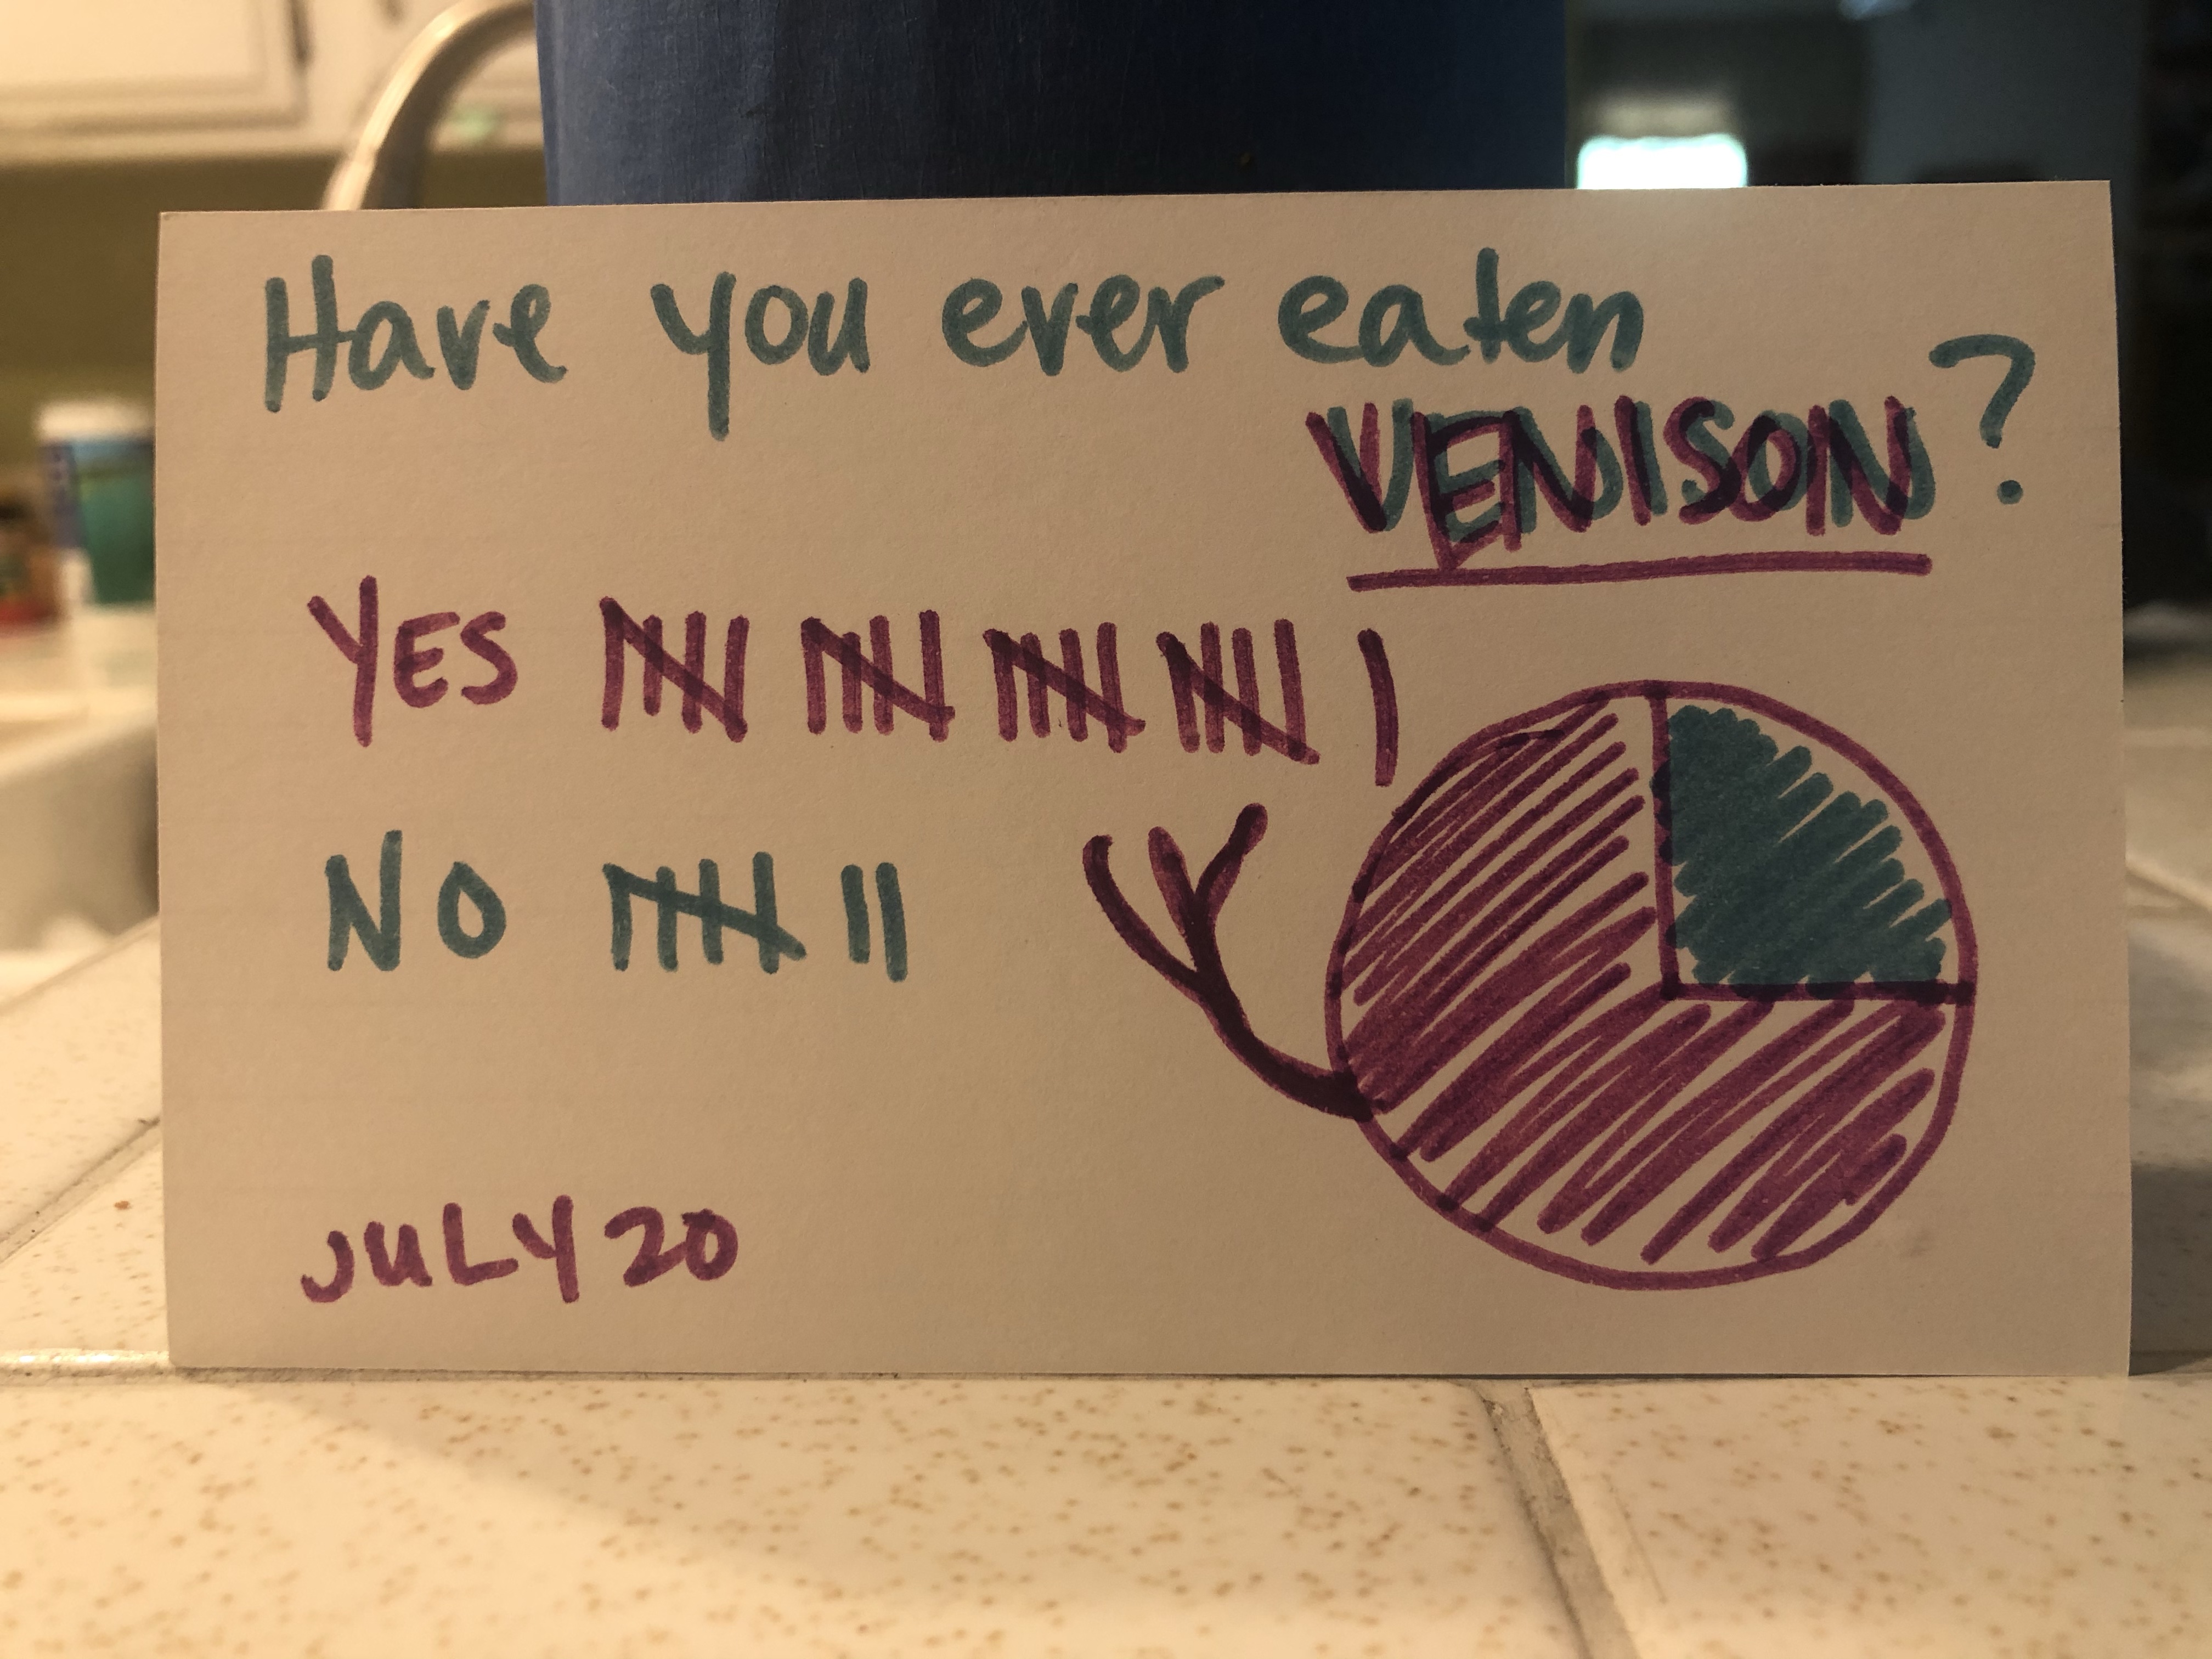 Have you ever eaten
VENISON?
YES
NO
JULY 20